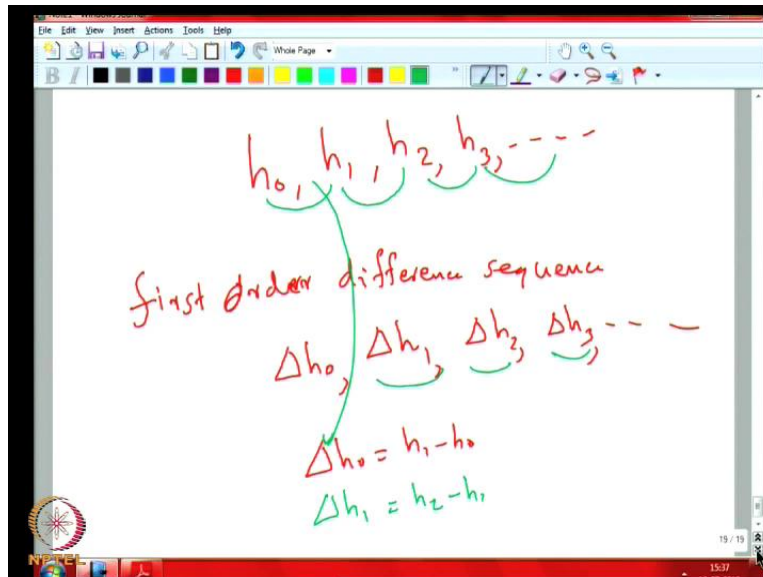 File Edit View Insert Actions Tools Help
Whole Page
B I
h₀, h₁, h₂, h₃, ----
first order difference sequence
Δh₀, Δh₁, Δh₂, Δh₃, -- —
Δh₀ = h₁ - h₀
Δh₁ = h₂ - h₁
NPTEL
19 / 19
15:37